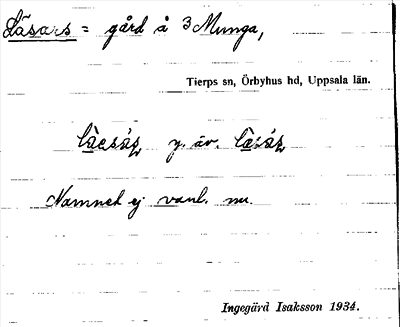 Låsars = gård å 3 Munga,
Tierps sn, Örbyhus hd, Uppsala län.
y. äv.
Namnet ej vanl. nu.
Ingegärd Isaksson 1934.